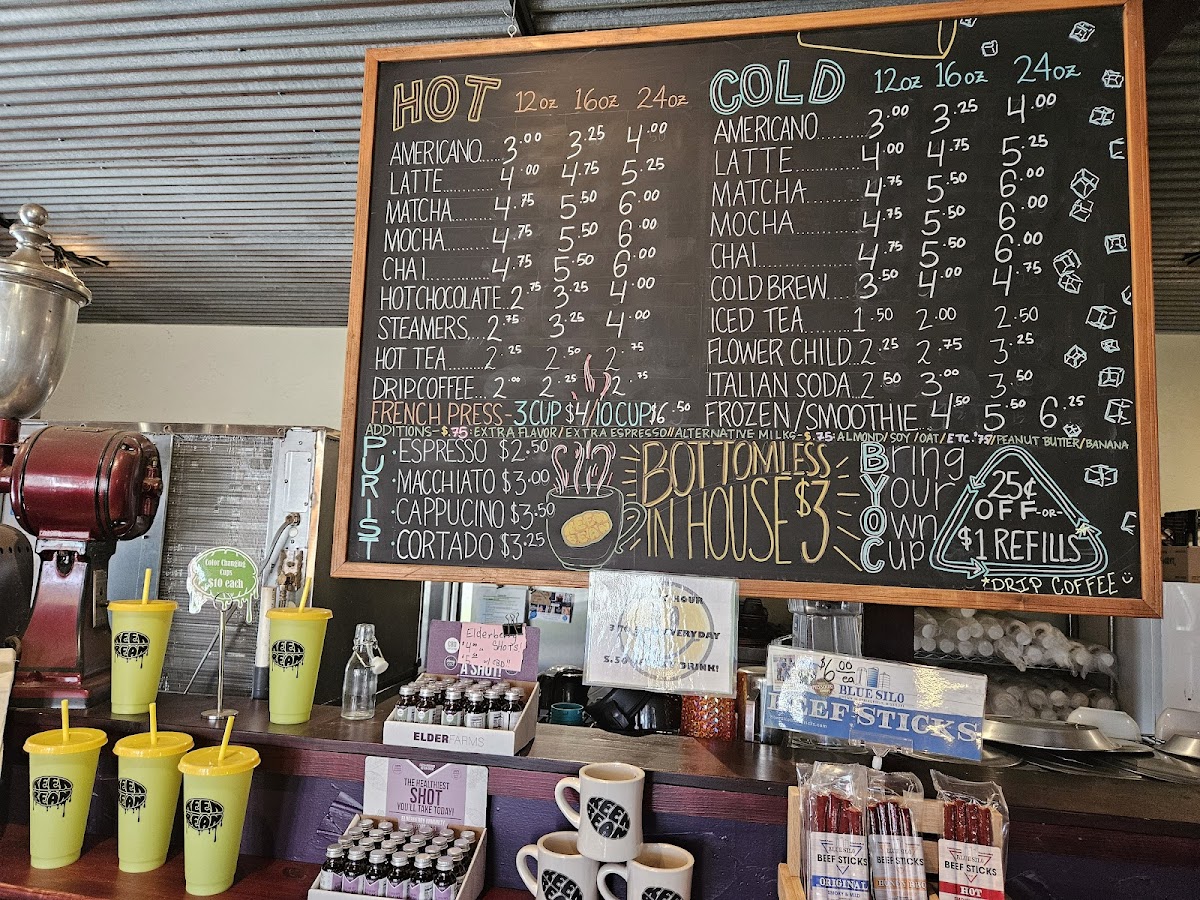 HOT 12oz 16oz 24oz
AMERICANO.....3.00 3.25 4.00
LATTE............4.00 4.75 5.25
MATCHA.........4.75 5.50 6.00
MOCHA.........4.75 5.50 6.00
CHAI............4.75 5.50 6.00
HOT CHOCOLATE..2.75 3.25 4.00
STEAMERS....2.75 3.25 4.00
HOT TEA........2.25 2.50 2.75
DRIP COFFEE...2.00 2.25 2.75
FRENCH PRESS-3 CUP $4/10 CUP $6.50
COLD 12oz 16oz 24oz
AMERICANO.........3.00 3.25 4.00
LATTE..............4.00 4.75 5.25
MATCHA............4.75 5.50 6.00
MOCHA............4.75 5.50 6.00
CHAI..................4.75 5.50 6.00
COLD BREW.....3.50 4.00 4.75
ICED TEA.........1.50 2.00 2.50
FLOWER CHILD..2.25 2.75 3.25
ITALIAN SODA..2.50 3.00 3.50
FROZEN/SMOOTHIE..4.50 5.50 6.25
ADDITIONS-$.75: EXTRA FLAVOR/EXTRA ESPRESSO//ALTERNATIVE MILKS-$.75: ALMOND/SOY/OAT/ETC. $.75/PEANUT BUTTER/BANANA
PURIST
·ESPRESSO $2.50
·MACCHIATO $3.00
·CAPPUCINO $3.50
·CORTADO $3.25
BOTTOMLESS
IN HOUSE $3
BYOC
Bring
Your
Own
Cup
25¢
OFF -OR-
$1 REFILLS
*DRIP COFFEE
Color Changing
Cups
$10 each
KEEN
BEAN
KEEN
BEAN
KEEN
BEAN
KEEN
BEAN
KEEN
BEAN
Elderberry
SHOTS!
A SHOT!
ELDERFARMS
HOUR
EVERYDAY
DRINK!
$6.00
ea
BLUE SILO
BEEF STICKS
THE HEALTHIEST
SHOT
YOU'LL TAKE TODAY!
KEEN
BEAN
KEEN
BEAN
KEEN
BEAN
BLUE SILO
BEEF STICKS
ORIGINAL
BLUE SILO
BEEF STICKS
BLUE SILO
BEEF STICKS
HOT